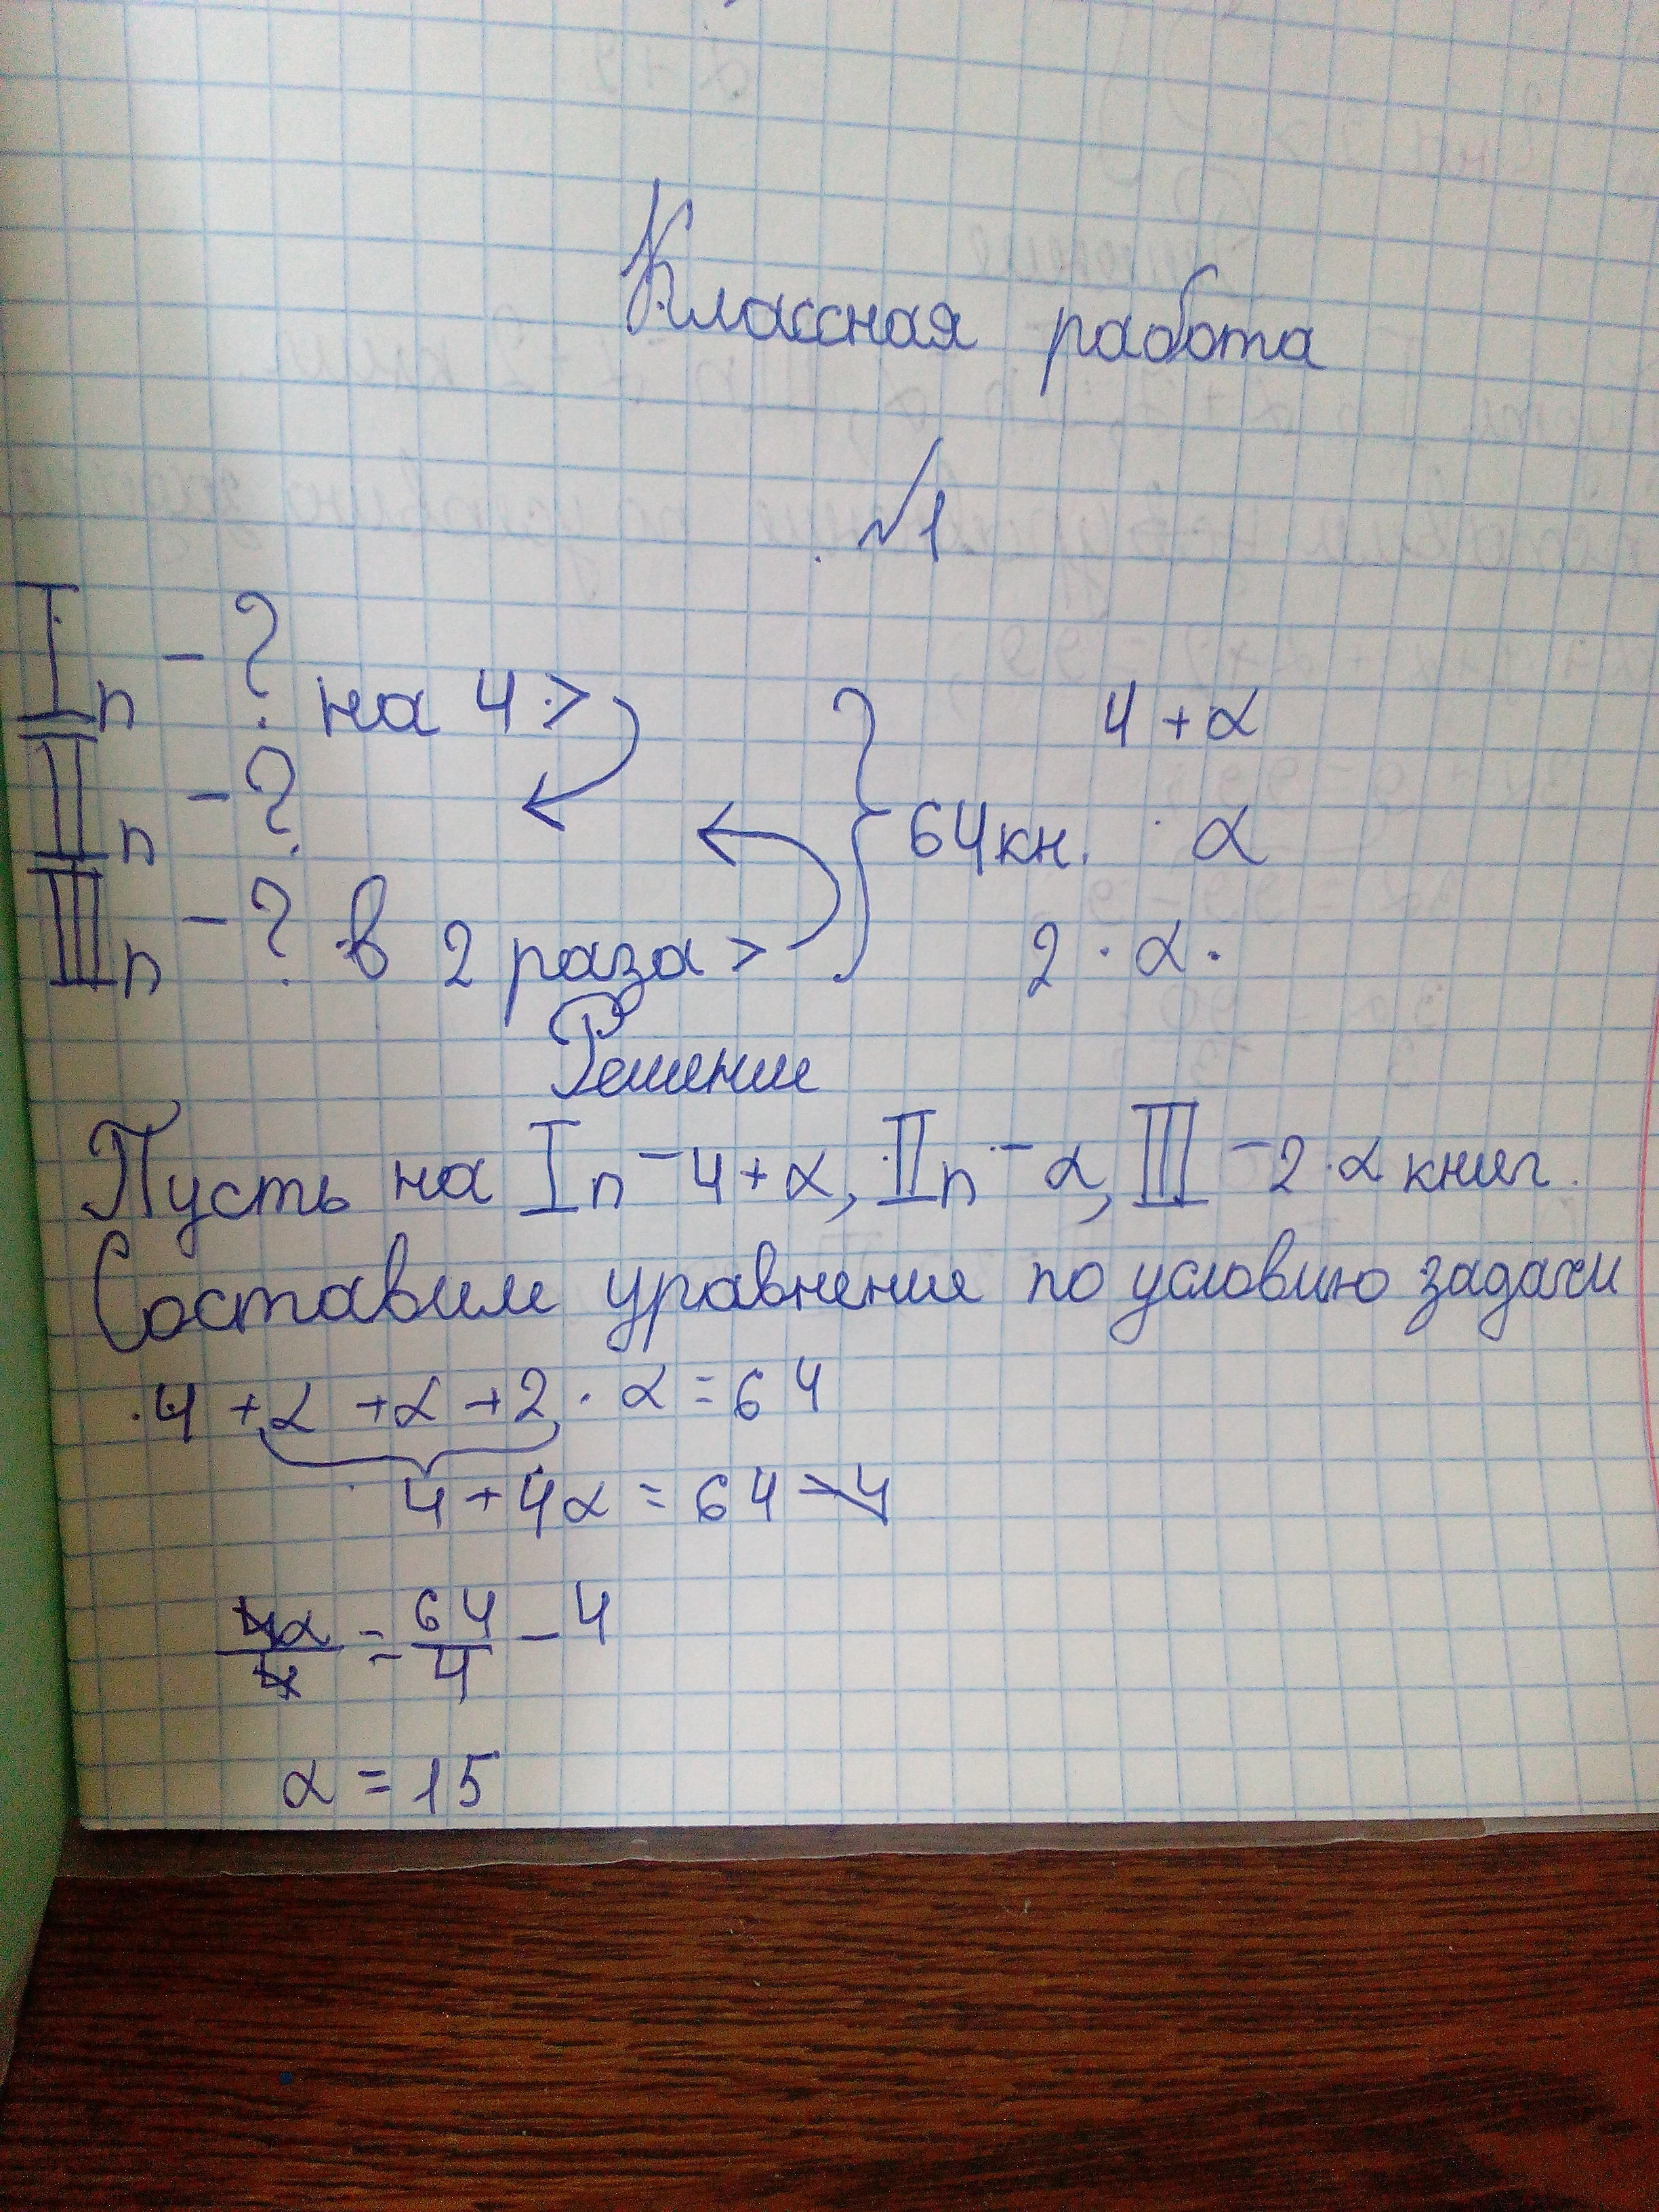 Классная работа
№1
Iп - ? на 4 > 4 + α
IIп - ? 64 кн. α
IIIп - ? в 2 раза > 2 · α.
Решение
Пусть на Iп - 4 + α, IIп - α, III - 2 · α книг.
Составим уравнение по условию задачи
4 + α + α + 2 · α = 64
4 + 4α = 64 - 4
4α/4 = 64/4 - 4
α = 15